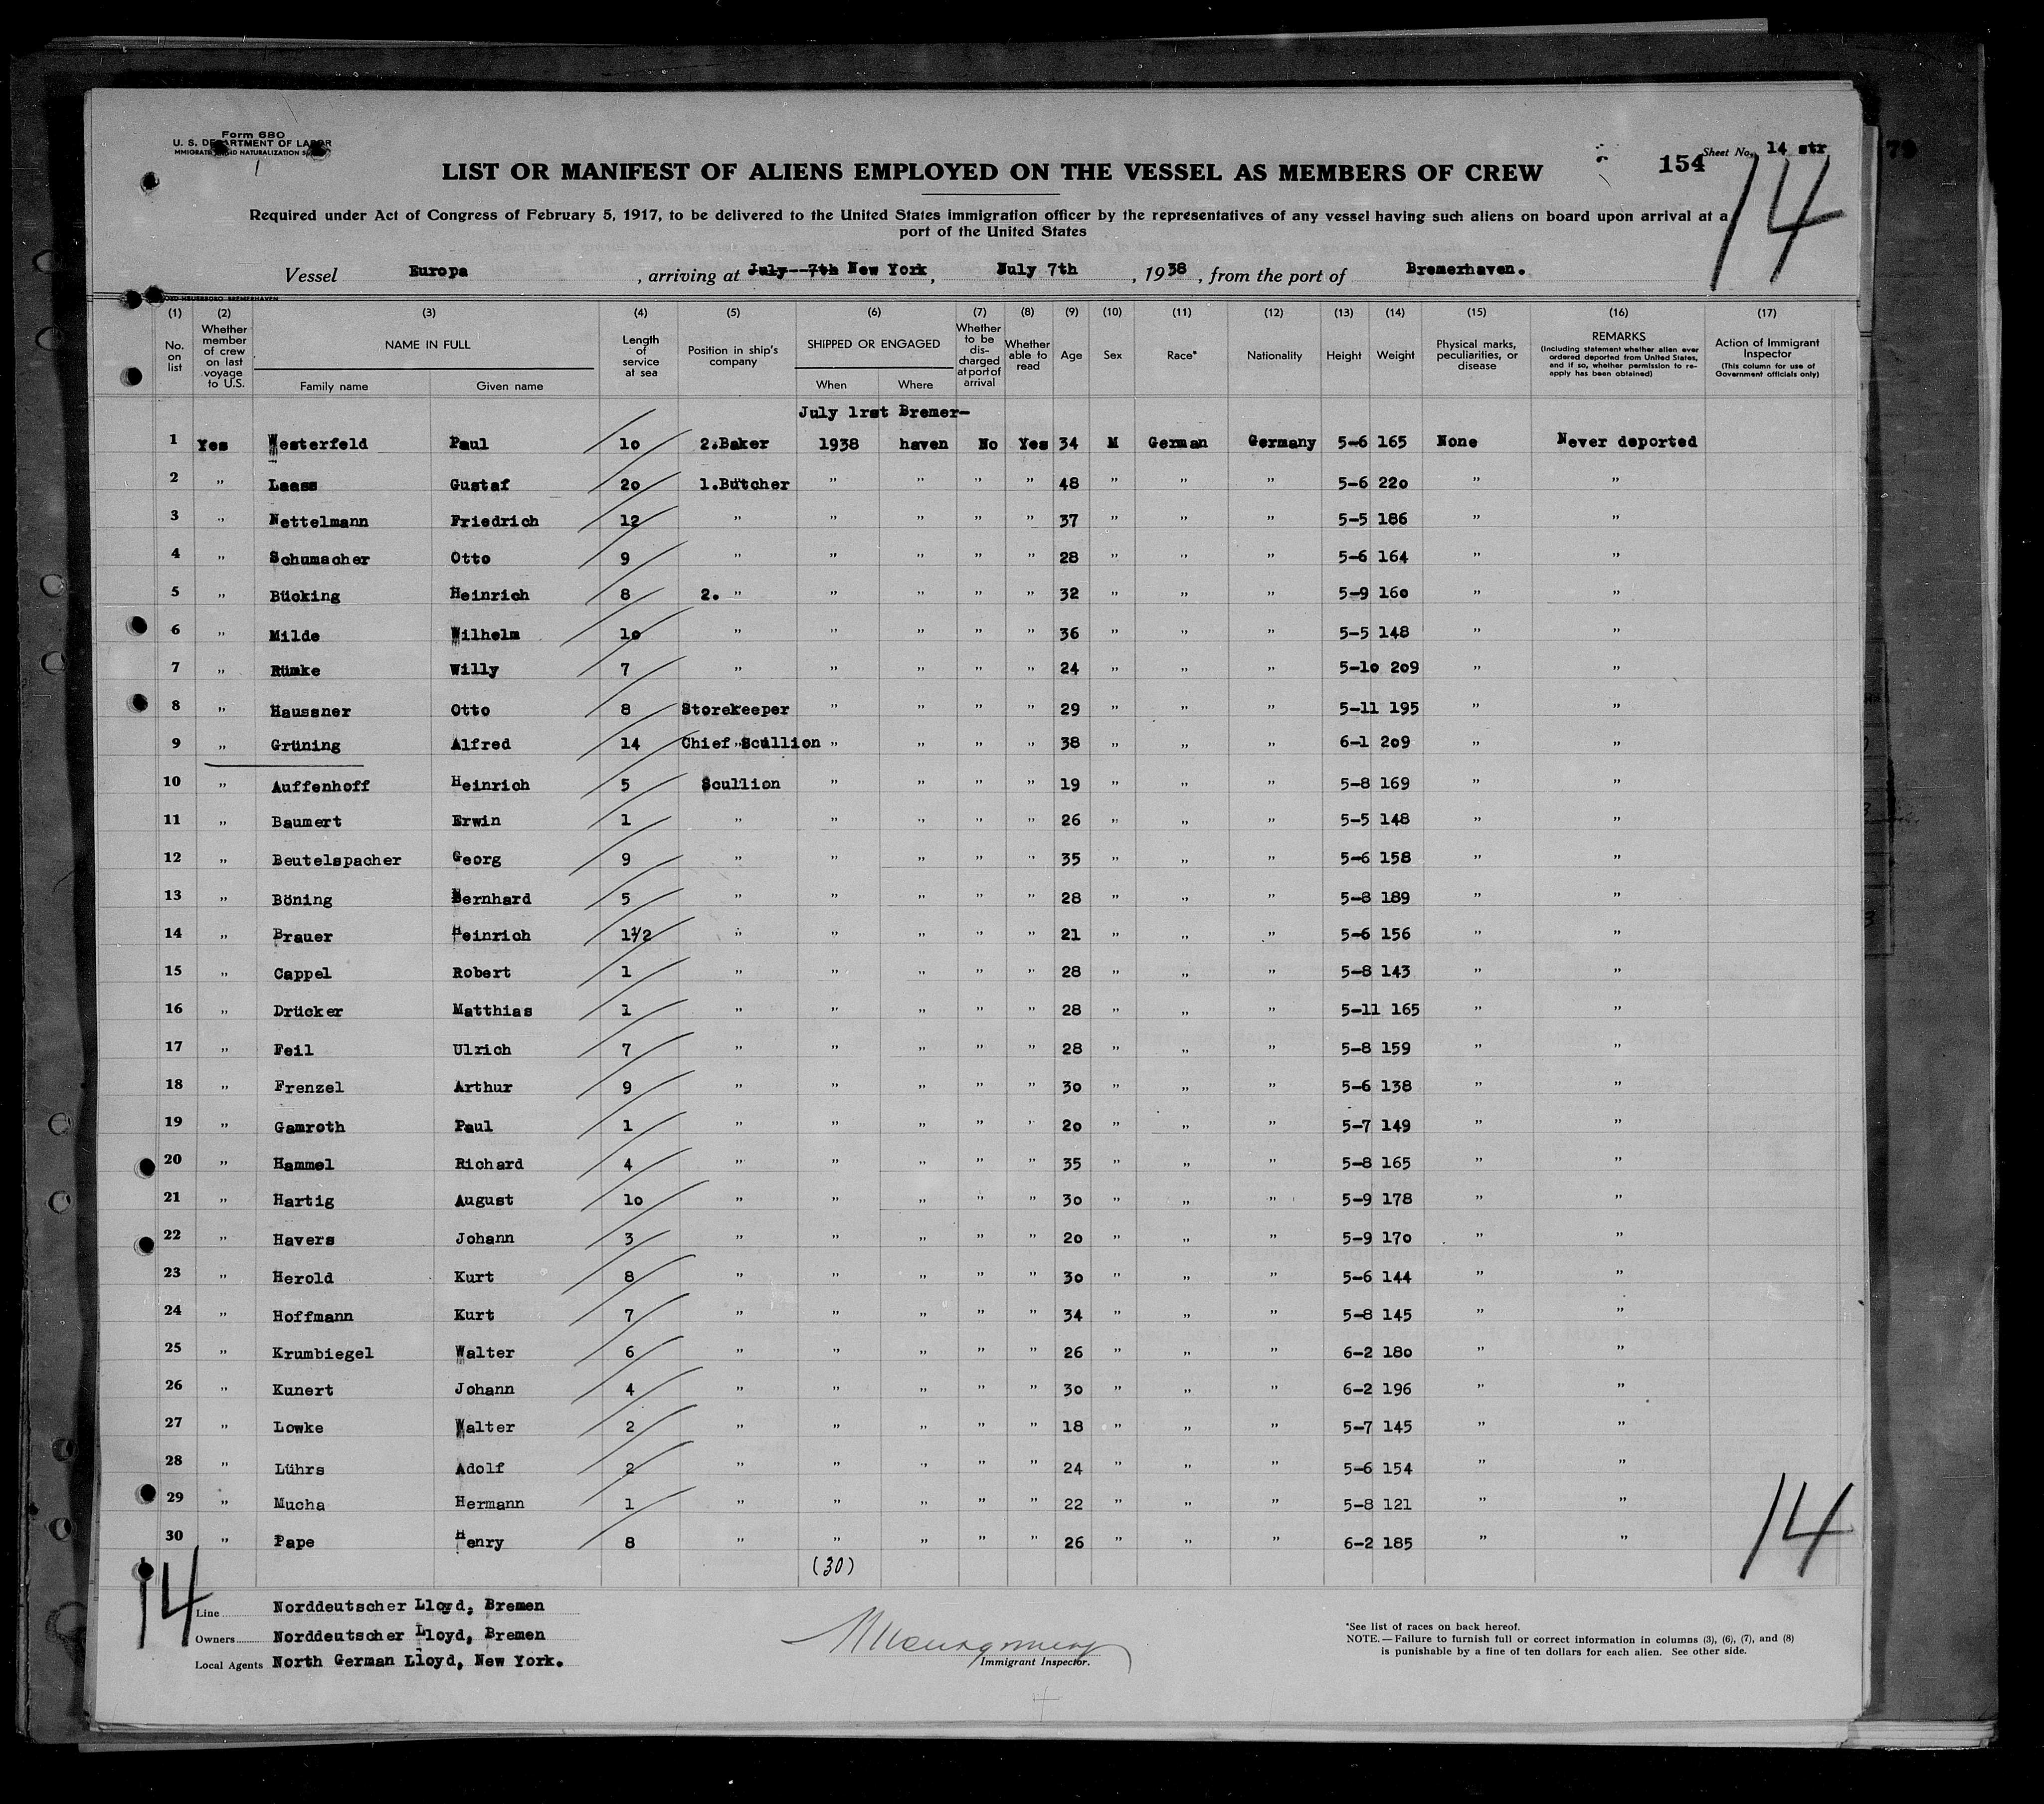 Form 680
U. S. DEPARTMENT OF LABOR
IMMIGRATION AND NATURALIZATION
LIST OR MANIFEST OF ALIENS EMPLOYED ON THE VESSEL AS MEMBERS OF CREW
154 Sheet No. 14 str
14
Required under Act of Congress of February 5, 1917, to be delivered to the United States immigration officer by the representatives of any vessel having such aliens on board upon arrival at a
port of the United States
Vessel Europa , arriving at July--7th New York, July 7th , 1938 , from the port of Bremerhaven.
(1) No. on list
(2) Whether member of crew on last voyage to U.S.
(3) NAME IN FULL Family name Given name
(4) Length of service at sea
(5) Position in ship's company
(6) SHIPPED OR ENGAGED When Where
(7) Whether to be dis-charged at port of arrival
(8) Whether able to read
(9) Age
(10) Sex
(11) Race*
(12) Nationality
(13) Height
(14) Weight
(15) Physical marks, peculiarities, or disease
(16) REMARKS (Including statement whether alien ever ordered deported from United States, and if so, whether permission to re-apply has been obtained)
(17) Action of Immigrant Inspector (This column for use of Government officials only)
July 1rst Bremer-
1 Yes Westerfeld Paul 10 2.Baker 1938 haven No Yes 34 M German Germany 5-6 165 None Never deported
2 " Laass Gustaf 20 1.Butcher " " " " 48 " " " 5-6 220 " "
3 " Nettelmann Friedrich 12 " " " " " 37 " " " 5-5 186 " "
4 " Schumacher Otto 9 " " " " " 28 " " " 5-6 164 " "
5 " Bücking Heinrich 8 2. " " " " " 32 " " " 5-9 160 " "
6 " Milde Wilhelm 10 " " " " " 36 " " " 5-5 148 " "
7 " Rümke Willy 7 " " " " " 24 " " " 5-10 209 " "
8 " Haussner Otto 8 Storekeeper " " " " 29 " " " 5-11 195 " "
9 " Grüning Alfred 14 Chief Scullion " " " " 38 " " " 6-1 209 " "
10 " Auffenhoff Heinrich 5 Scullion " " " " 19 " " " 5-8 169 " "
11 " Baumert Erwin 1 " " " " " 26 " " " 5-5 148 " "
12 " Beutelspacher Georg 9 " " " " " 35 " " " 5-6 158 " "
13 " Böning Bernhard 5 " " " " " 28 " " " 5-8 189 " "
14 " Brauer Heinrich 1½ " " " " " 21 " " " 5-6 156 " "
15 " Cappel Robert 1 " " " " " 28 " " " 5-8 143 " "
16 " Drücker Matthias 1 " " " " " 28 " " " 5-11 165 " "
17 " Feil Ulrich 7 " " " " " 28 " " " 5-8 159 " "
18 " Frenzel Arthur 9 " " " " " 30 " " " 5-6 138 " "
19 " Gamroth Paul 1 " " " " " 20 " " " 5-7 149 " "
20 " Hammel Richard 4 " " " " " 35 " " " 5-8 165 " "
21 " Hartig August 10 " " " " " 30 " " " 5-9 178 " "
22 " Havers Johann 3 " " " " " 20 " " " 5-9 170 " "
23 " Herold Kurt 8 " " " " " 30 " " " 5-6 144 " "
24 " Hoffmann Kurt 7 " " " " " 34 " " " 5-8 145 " "
25 " Krumbiegel Walter 6 " " " " " 26 " " " 6-2 180 " "
26 " Kunert Johann 4 " " " " " 30 " " " 6-2 196 " "
27 " Lowke Walter 2 " " " " " 18 " " " 5-7 145 " "
28 " Lührs Adolf 2 " " " " " 24 " " " 5-6 154 " "
29 " Mucha Hermann 1 " " " " " 22 " " " 5-8 121 " "
30 " Pape Henry 8 " " " " " 26 " " " 6-2 185 " "
(30)
14
14
Line Norddeutscher Lloyd, Bremen
Owners Norddeutscher Lloyd, Bremen
Local Agents North German Lloyd, New York.
Immigrant Inspector.
*See list of races on back hereof.
NOTE.—Failure to furnish full or correct information in columns (3), (6), (7), and (8)
is punishable by a fine of ten dollars for each alien. See other side.
79